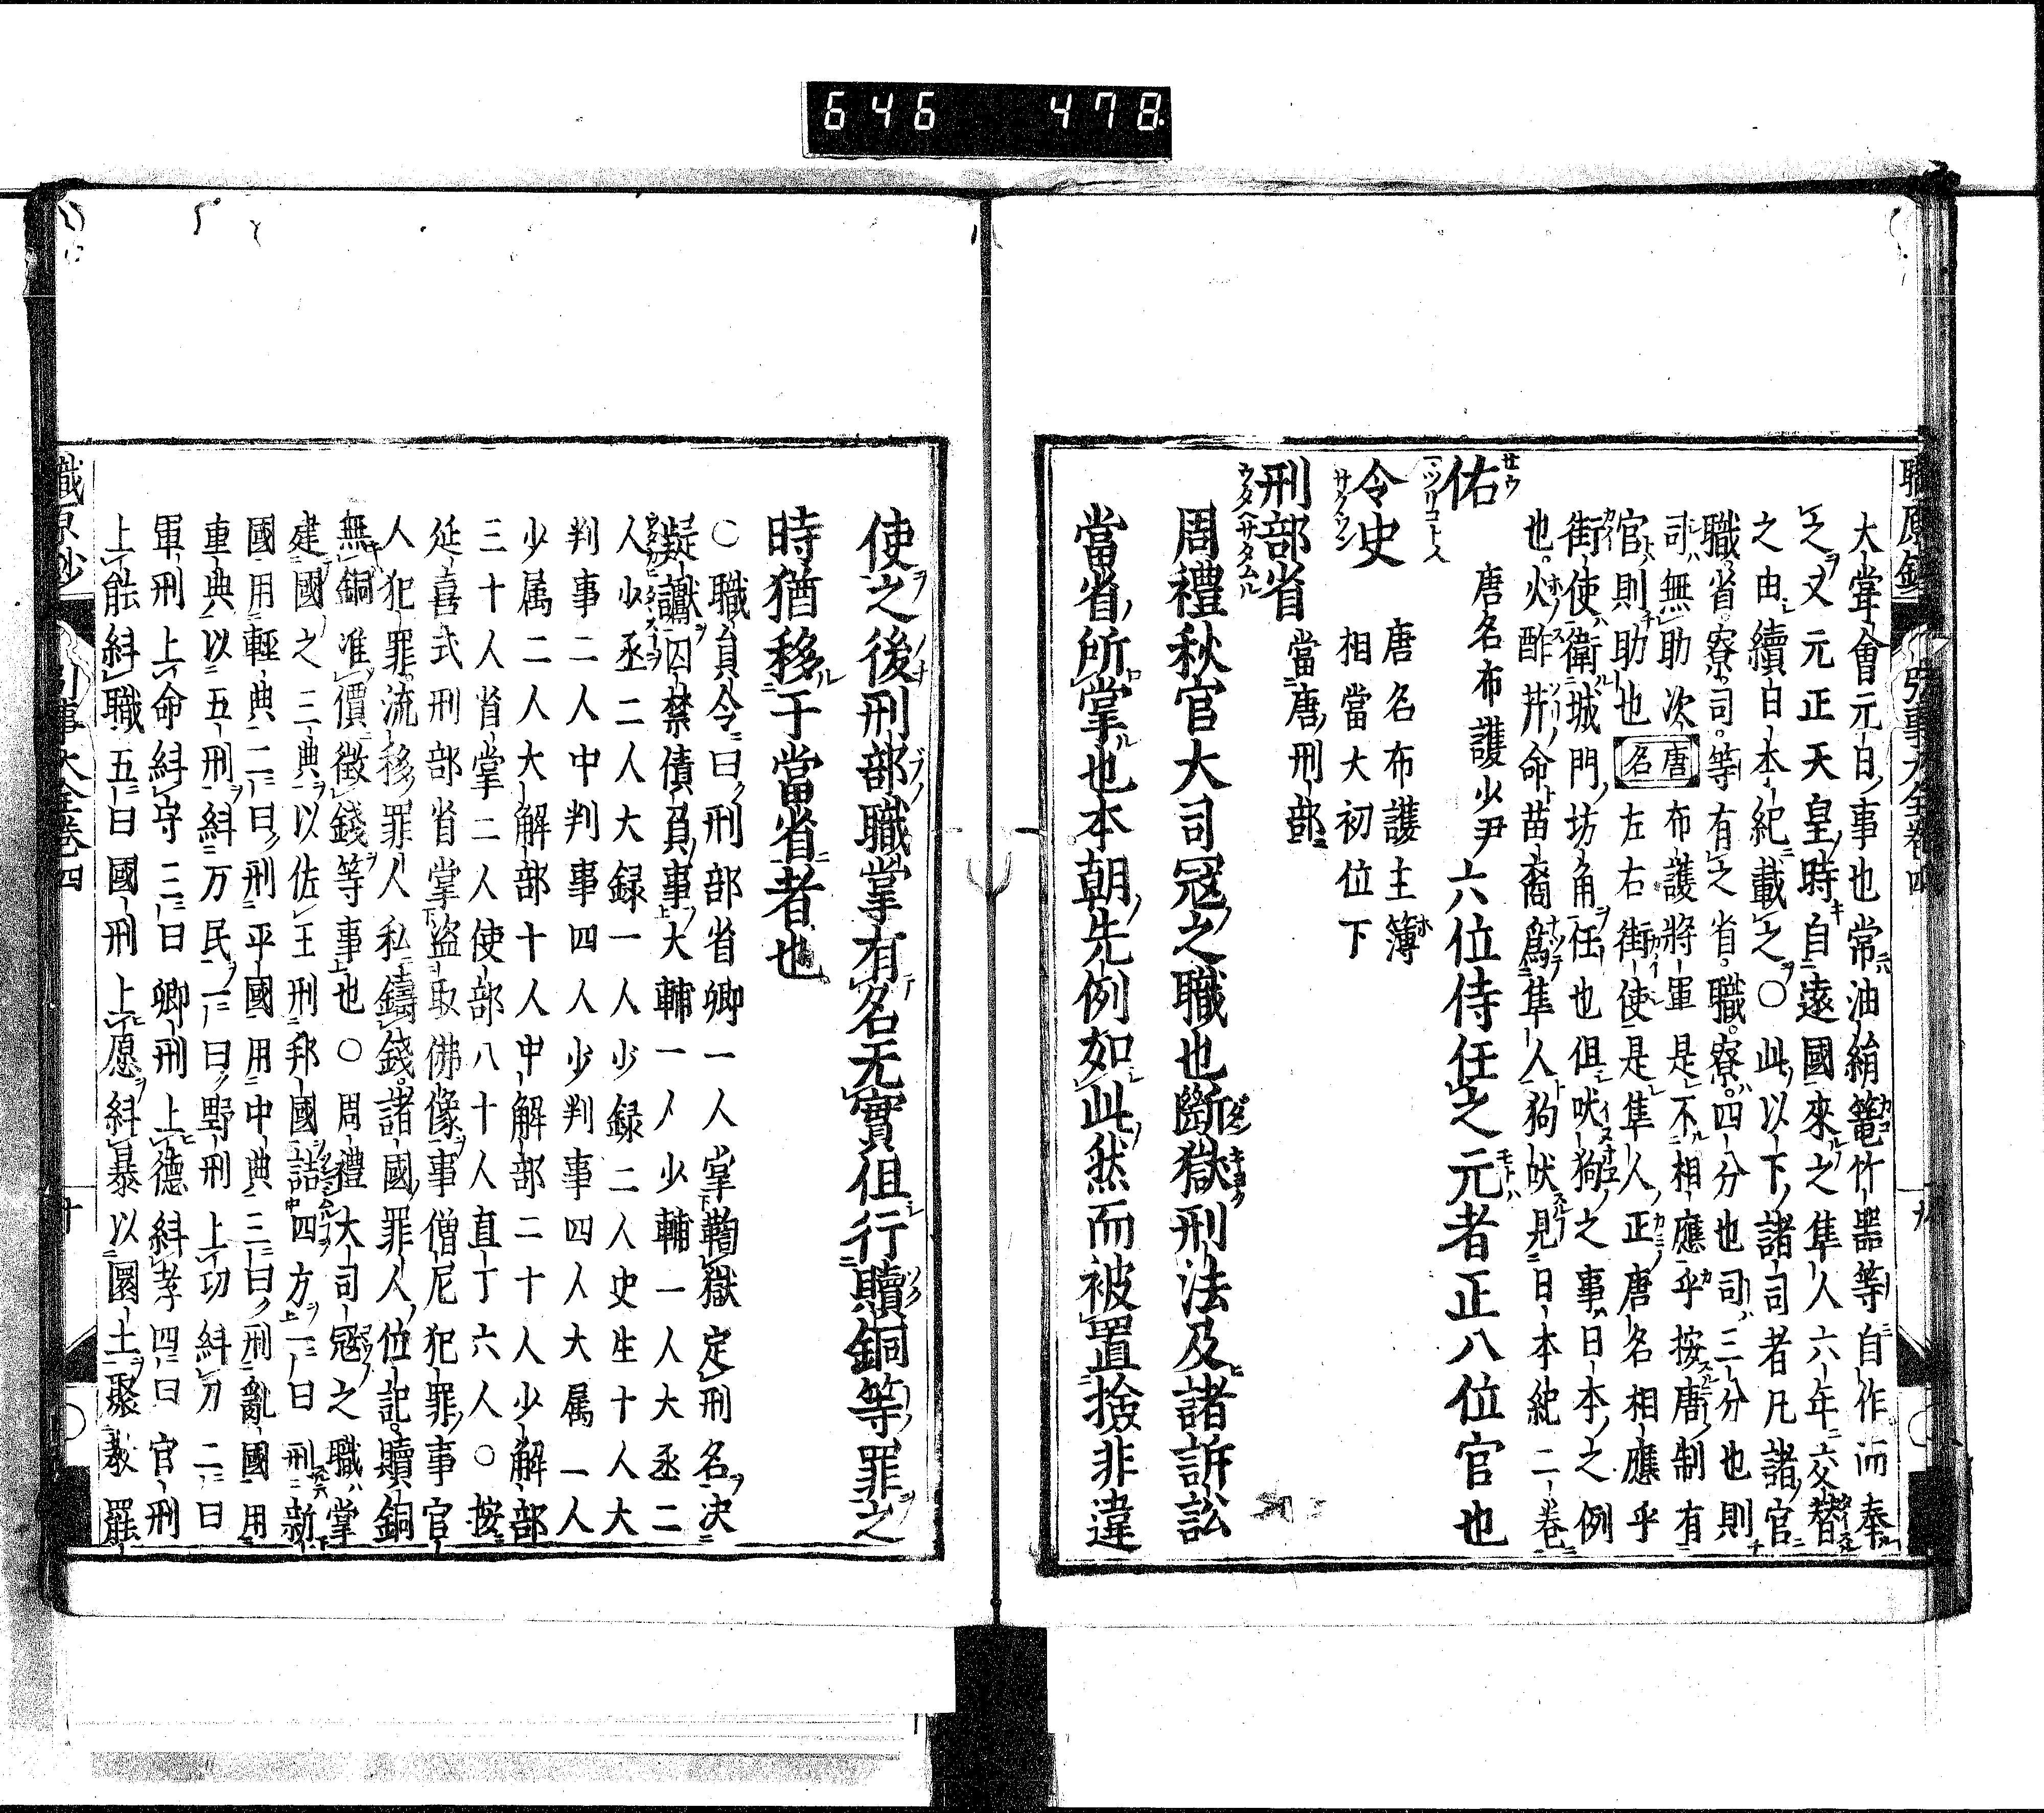 646 478
職原鈔 引事大全卷四
大甞會元日事也常油絹篭竹器等自作而奉
之又元正天皇時自遠國來之隼人六年交替
之由續日本紀載之○此以下諸司者凡諸官
職省寮司等有之省職寮四分也司三分也則
司無助次唐布護將軍是不相應乎按唐制有
官則助也唐名左右街使是隼人正唐名相應乎
街使衛城門坊角任也但吠狗之事日本之例
也火酢芹命苗裔爲隼人狗吠見日本紀二卷
佑 唐名布護少尹六位侍任之元者正八位官也
令史 唐名布護主簿
相當大初位下
刑部省 當唐刑部
周禮秋官大司冦之職也斷獄刑法及諸訴訟
當省所掌也本朝先例如此然而被置撿非違
使之後刑部職掌有名无實但行贖銅等罪之
時猶移于當省者也
○職員令曰刑部省卿一人掌鞫獄定刑名决
疑讞囚禁債負事大輔一人少輔一人大丞二
人少丞二人大録一人少録二人史生十人大
判事二人中判事四人少判事四人大属一人
少属二人大解部十人中解部二十人少解部
三十人省掌二人使部八十人直丁六人○按
延喜式刑部省掌盗取佛像事僧尼犯罪事官
人犯罪流移罪人私鑄錢諸國罪人位記贖銅
無銅准價徵錢等事也○周禮大司冦之職掌
建國之三典以佐王刑邦國詰四方一曰刑新
國用輕典二曰刑平國用中典三曰刑亂國用
重典以五刑糾万民一曰野刑上功糾力二曰
軍刑上命糾守三曰卿刑上德糾孝四曰官刑
上能糾職五曰國刑上愿糾暴以圜土聚敎罷
職原鈔 引事大全卷四 十